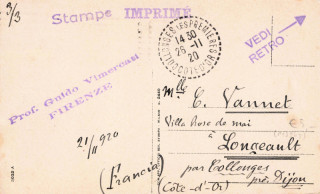 3/3
Stampe IMPRIMÉ
COLLONGES-LES-PREMIÈRES
14 30
26 - 11
20
VEDI
RETRO
Prof. Guido Vimercati
FIRENZE
21/11 920
(Francia)
Mlle C. Vannet
Ville Rose de mai
à Longeault
par Collonges
près Dijon
(Côte-d'Or)